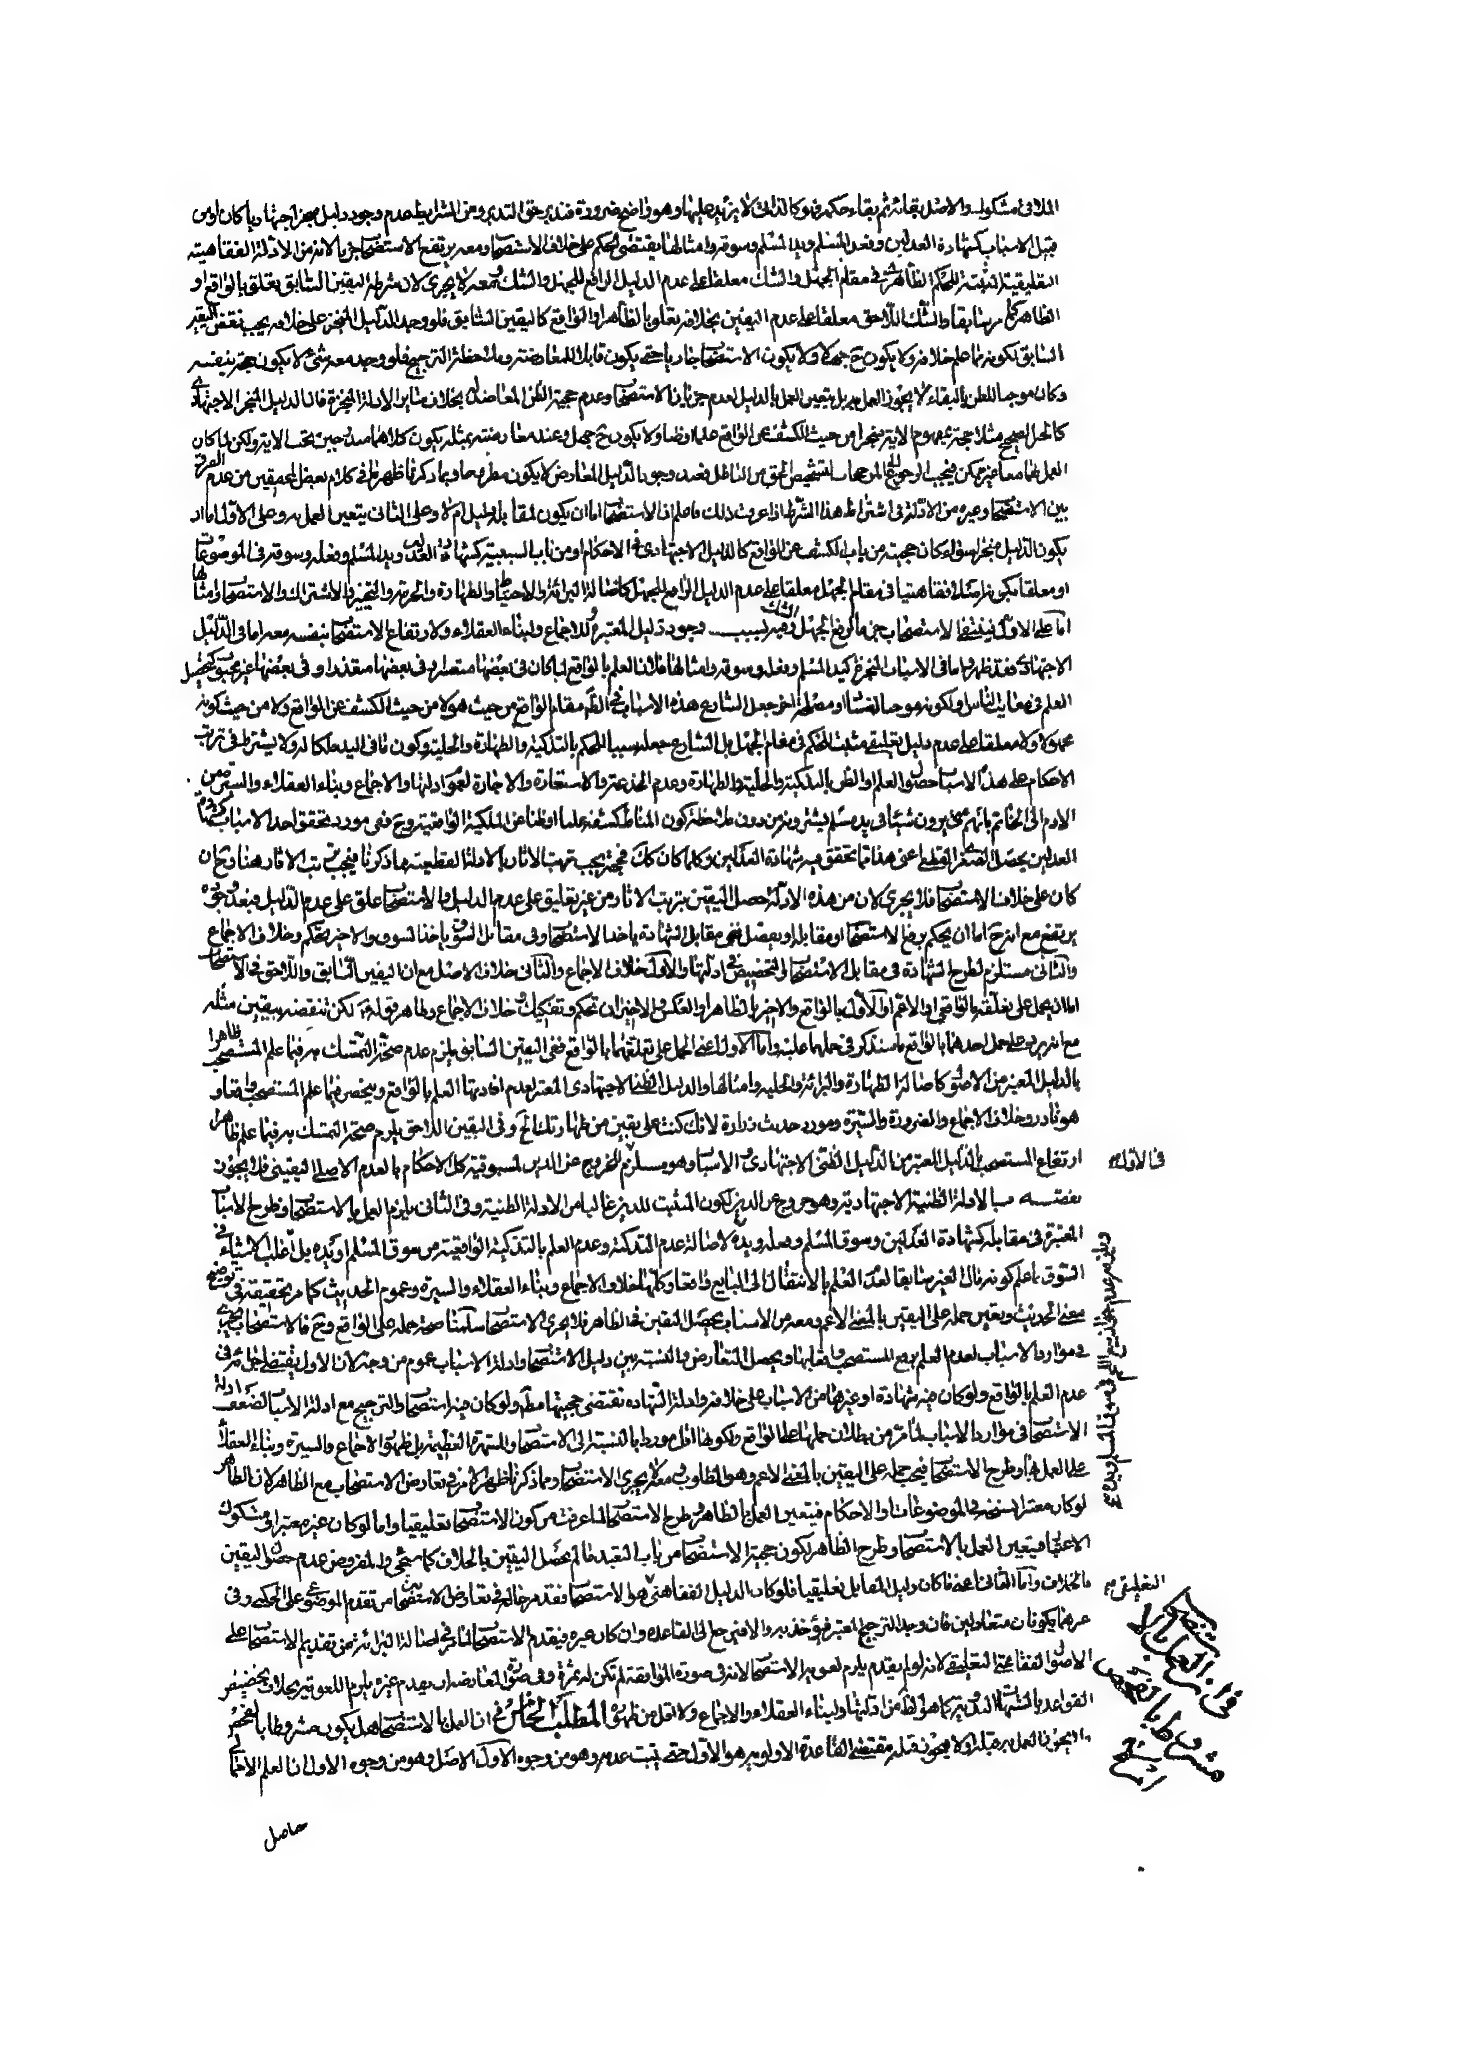 الملاقى مشكوك والاصل بقائه ثم بقاء حكمه وهو كالذاتى لا يزيد عليها وهو واضح ضرورة فتدبر حق التدبر ومن الشرايط عدم وجود دليل معتبر اجتهاديا كان او من
قبيل الاسباب كشهادة العدلين وفعل المسلم ويد المسلم وسوقه وامثالها يقتضى الحكم على خلاف الاستصحاب ومعه يرتفع الاستصحاب جزما لانه من الادلة الفقاهتية
التعليقية المثبتة للحكم الظاهرى فى مقام الجهل والشك معلقا على عدم الدليل الرافع للجهل والشك ومعه لا يجرى لان شرطه اليقين السابق تعلق بالواقع او
الظاهر كما مر بيانه والشك اللاحق معلقا على عدم اليقين بخلافه تعلق بالظاهر او الواقع كاليقين السابق فلو وجد الدليل المعتبر على خلافه يجب نقض اليقين
السابق لكونه علم خلافه ولا يكون ح جهلا ولا يكون الاستصحاب جاريا حتى يكون قابلا للمعارضة وملاحظة الترجيح فلو وجد معه شىء لا يكون حجة بنفسه
وكان موجبا للظن بالبقاء لا يجوز العمل به بل يتعين العمل بالدليل لعدم جريان الاستصحاب وعدم حجية الظن المعاضد له بخلاف ساير الادلة المعتبرة فان الدليل المعتبر الاجتهادى
كالخبر الصحيح مثلا حجة بمفهوم الاية من حيث الكشف عن الواقع علما او ظنا ولا يكون ح جهل وعند معارضته بمثله يكون كلاهما مندرجين تحت الاية ولكن لما كان
العمل بهما معا غير ممكن فيجب الرجوع الى المرجحات لتشخيص الحق من الباطل فبعد وجود الدليل المعارض لا يكون مطروحا وبما ذكرنا ظهر ما فى كلام بعض المحققين من عدم الفرق
بين الاستصحاب وغيره من الادلة فى اشتراط هذا الشرط اذا عرفت ذلك فاعلم ان الاستصحاب اما ان يكون لمقابله دليل ام لا وعلى الثانى يتعين العمل به وعلى الاول اما ان
يكون الدليل منجزا سواء كان حجيته من باب الكشف عن الواقع كالدليل الاجتهادى فى الاحكام او من باب السببية كشهادة العدلين ويد المسلم وفعله وسوقه فى الموضوعات
او معلقا بكونه مثله فقاهتيا فى مقام الجهل معلقا على عدم الدليل الرافع للجهل كاصالة البرائة والاحتياط والطهارة والحرمة والتخيير والاشتراك والاستصحاب وامثالها
اما على الاول فينتفى الاستصحاب جزما لرفع الجهل والشك فيه بسبب وجود دليل المعتبر وللاجماع ولبناء العقلاء ولارتفاع الاستصحاب بنفسه معه اما فى الدليل
الاجتهادى فقد ظهر واما فى الاسباب المنجزة كيد المسلم وفعله وسوقه وامثالها فلان العلم بالواقع لما كان فى بعضها متعسرا وفى بعضها متعذرا وفى بعضها غير محبوب كتحصيل
العلم فى معايب الناس او لكونه موجبا لفساد او مصلحة اخر جعل الشارع هذه الاسباب فى الظ مقام الواقع من حيث هو لا من حيث الكشف عن الواقع ولا من حيث كونه
مجهولا ولا معلقا على عدم دليل تعليقى مثبت للحكم فى مقام الجهل بل الشارع جعله سببا للحكم بالتذكية والطهارة والحلية وكون ما فى اليد ملكا له ولا يشترط فى ترتب
الاحكام على هذه الاسباب حصول العلم او الظن بالملكية والحلية والطهارة وعدم الخدعة والاستعارة والاجارة لعموم ادلتها والاجماع وبناء العقلاء والسيرة من
الادم الى الخاتم بانهم متى يرون شيئا فى يد مسلم يشترونه من دون ملاحظة كون المناط كشفه علما او ظنا عن الملكية الواقعية وح ففى مورد تحقق احد الاسباب كشهادة
العدلين يحصل الصغرى القطعى اعنى هذا مما تحقق فيه شهادة العدلين وكلما كان كك فهو يجب ترتيب الاثار بالادلة القطعية مما ذكرنا فيجب ترتب الاثار هنا وح ان
كان على خلاف الاستصحاب فلا يجرى لان من هذه الادلة حصل اليقين بترتب الاثار من غير تعليق على عدم الدليل والاستصحاب علق على عدم الدليل فبعد وجوده
يرتفع مع انه ح اما ان يحكم برفع الاستصحاب او مقابله او يفصل ففى مقابل الشهادة ياخذ الاستصحاب وفى مقابل السوق ياخذ السوق والاخير تحكم وخلاف الاجماع
والثانى مستلزم لطرح الشهادة فى مقابل الاستصحاب او التخصيص فى ادلتها والاول خلاف الاجماع والثانى خلاف الاصل مع ان اليقين السابق واللاحق فى الاستصحاب
اما ان يحمل على تعلقه بالواقعى او الاعم او الاول بالواقع والاخير بالظاهر او العكس والاخيران تحكم وتفكيك وخلاف الاجماع وظاهر قوله لكن تنقضه بيقين مثله
مع انه يرد على حمل احدهما بالواقع ما سنذكر فى حملهما عليه واما الاول اعنى الحمل على تعلقهما بالواقع ففى اليقين السابق يلزم عدم صحة التمسك به فيما علم المستصحب ظاهرا
بالدليل المعتبر من الاصول كاصالة الطهارة والبرائة والحلية وامثالها والدليل الظنى الاجتهادى المعتبر لعدم افادتها العلم بالواقع وينحصر فيما علم المستصحب واقعا و
هو نادر وخلاف الاجماع والضرورة والسيرة ومورد حديث زرارة لانك كنت على يقين من طهارتك الخ وفى اليقين اللاحق يلزم صحة التمسك به فيما علم ظاهرا
ارتفاع المستصحب بالدليل المعتبر من الدليل الظنى الاجتهادى والاسباب وهو مستلزم للخروج عن الدين لمسبوقية كل الاحكام بالعدم الاصلى اليقينى فلا يجوز
نقضه بالادلة الظنية الاجتهادية وهو خروج عن الدين لكون المثبت للدين غالبا من الادلة الظنية وفى الثانى يلزم العمل بالاستصحاب وطرح الاسباب
المعتبرة فى مقابله كشهادة العدلين وسوق المسلم وفعله ويده لاصالة عدم التذكية وعدم العلم بالتذكية الواقعية من سوق المسلم او يده بل اغلب الاشياء فى
السوق ما علم كونه مال الغير سابقا لعدم العلم بالانتقال الى البايع واقعا وكلها خلاف الاجماع وبناء العقلاء والسيرة وعموم الحديث كما مر تحقيقه فى توضيح
معنى الحديث وتعين حمله على اليقين بالمعنى الاعم ومعه من الاسباب يحصل اليقين فى الظاهر فلا يجرى الاستصحاب سلمنا صحة حمله على الواقع وح فالاستصحاب يجرى
فى موارد الاسباب لعدم العلم برفع المستصحب واقعا بها ويحصل التعارض والنسبة بين دليل الاستصحاب وادلة الاسباب عموم من وجه لان الاول يقتضى اجرائه فى
عدم العلم بالواقع ولو كان فيه شهادة او غيرها من الاسباب على خلافه وادلة الشهادة تقتضى حجيتها مط ولو كان فيه استصحاب والترجيح مع ادلة الاسباب لضعف ادلة
الاستصحاب فى موارد الاسباب لما مر من بطلان حملها على الواقع ولكونها اقل موردا بالنسبة الى الاستصحاب والشهرة العظيمة بل ظهور الاجماع والسيرة وبناء العقلاء
على العمل بها وطرح الاستصحاب فيجب حمله على اليقين بالمعنى الاعم وهو المطلوب ومعه لا يجرى الاستصحاب ومما ذكرنا ظهر الامر فى تعارض الاستصحاب مع الظاهر لان الظاهر
لو كان معتبرا فى الموضوعات والاحكام فيتعين العمل بالظاهر وطرح الاستصحاب لما عرفت من كون الاستصحاب تعليقيا واما لو كان غير معتبر او مشكوك
الاعتبار فيتعين العمل بالاستصحاب وطرح الظاهر لكون حجية الاستصحاب من باب التعبد ما لم يحصل اليقين بالخلاف كما سيجىء والمفروض عدم حصول اليقين
بالخلاف واما الثانى اعنى ما كان دليل المقابل تعليقيا فلو كان الدليل الفقاهتى هو الاستصحاب فقد مر حاله فى تعارض الاستصحابين من تقدم الموضوعى على الحكمى وفى
غيرهما يكونان متعادلين فان وجد الترجيح المعتبر فيؤخذ به والا فيرجع الى القاعدة وان كان غيره فيقدم الاستصحاب لما مر فى اصالة البرائة من تقديم الاستصحاب على
الاصول الفقاهتى التعليقى لانه لو لم يقدم يلزم لغوية الاستصحاب لانه فى صورة الموافقة لم تكن له ثمرة وفى صورة المعارضة ان يقدم غيره يلزم اللغوية بخلاف تخصيص
القواعد بالشبهات البدوية كما هو الظ من ادلتها ولبناء العقلاء والاجماع ولا اقل من ظهوره المطلب الخامس فى ان العمل بالاستصحاب هل يكون مشروطا بالفحص
لا يجوز العمل به قبله او لا فيجوز قبله مقتضى القاعدة الاولوية هو الاول حتى يثبت عدمه وهو من وجوه الاول الاصل وهو من وجوه الاول ان العلم الاجمالى
فى الاول
التعليقى
فى ان العمل بالا
ستصحاب
مشروط بالفحص
ام لا
حاصل